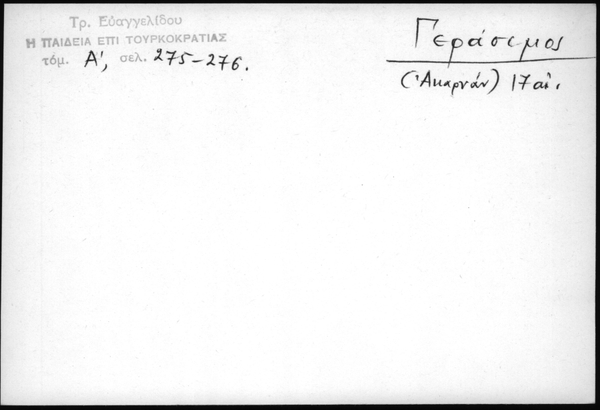 Τρ. Εὐαγγελίδου
Η ΠΑΙΔΕΙΑ ΕΠΙ ΤΟΥΡΚΟΚΡΑΤΙΑΣ
τόμ. Α', σελ. 275-276.
Γεράσιμος
(Ἀκαρνάν) 17 αἰ.